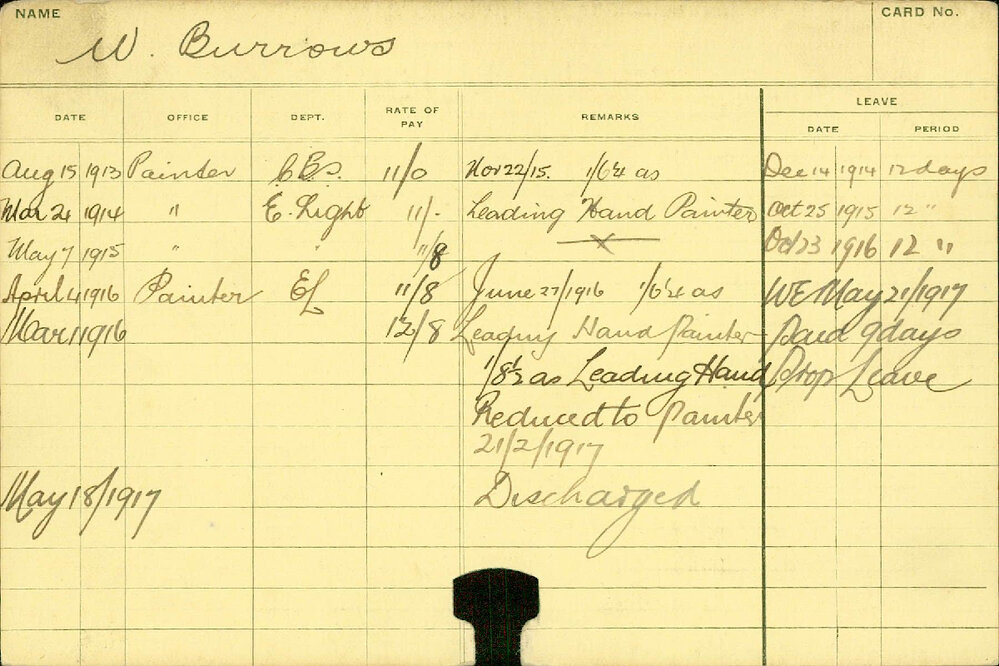 NAME
CARD No.
W. Burrows
LEAVE
DATE OFFICE DEPT. RATE OF PAY REMARKS DATE PERIOD
Aug 15 1913 Painter C.B.S. 11/0 Nov 22/15. 1/6¼ as Dec 14 1914 12 days
Mar 24 1914 " E. Light 11/- Leading Hand Painter Oct 25 1915 12 "
May 7 1915 " " 11/8 x Oct 23 1916 12 "
April 4 1916 Painter EL 11/8 June 27/1916 1/6¼ as WE May 21/1917
Mar 1 1916 12/8 Leading Hand Painter Paid 9 days
1/8½ as Leading Hand Prop Leave
Reduced to Painter
21/2/1917
May 18/1917 Discharged